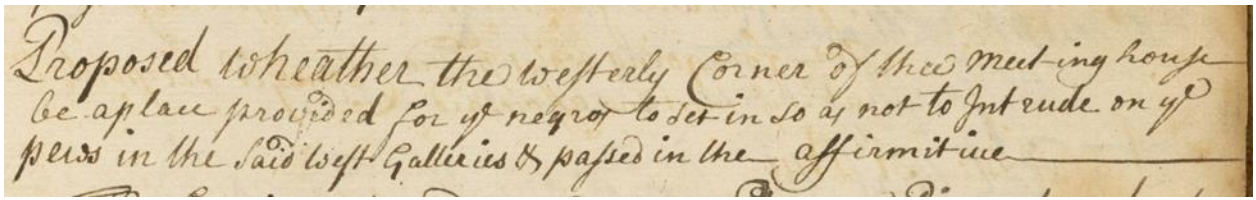 Proposed wheather the westerly Corner of thee meeting house
be a place provided for ye negros to set in so as not to Intrude on ye
pews in the Said west Galleries & passed in the affirmitive